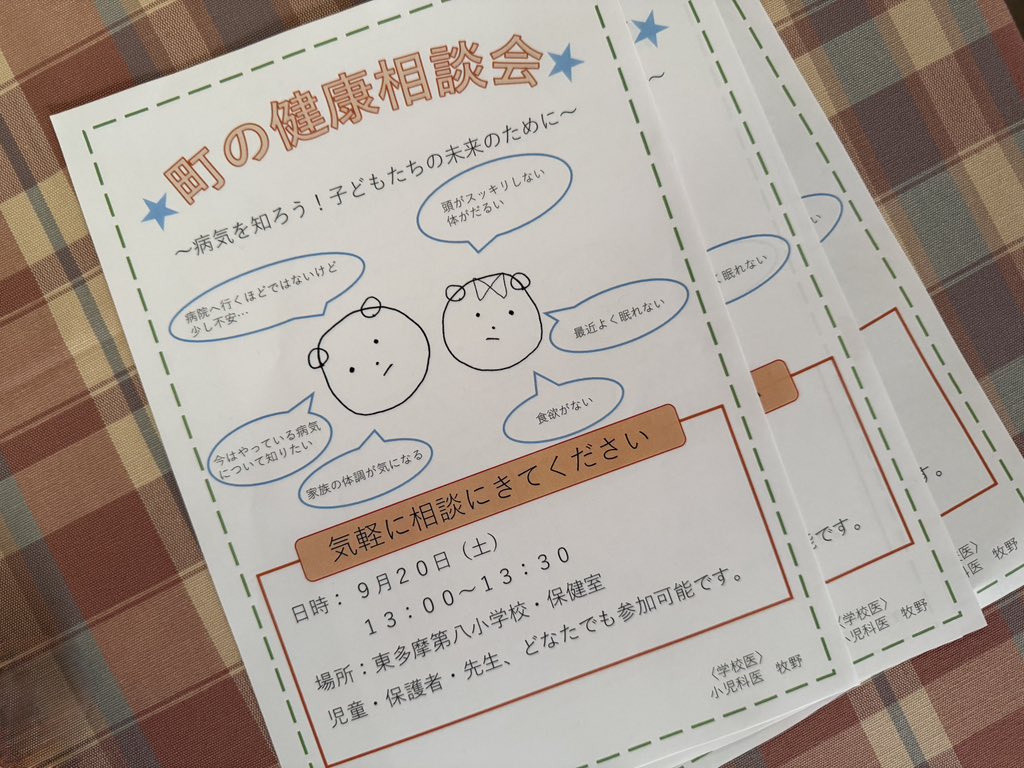 町の健康相談会
～病気を知ろう！子どもたちの未来のために～
頭がスッキリしない
体がだるい
病院へ行くほどではないけど
少し不安…
最近よく眠れない
食欲がない
今はやっている病気
について知りたい
家族の体調が気になる
気軽に相談にきてください
日時：９月２０日（土）
１３：００～１３：３０
場所：東多摩第八小学校・保健室
児童・保護者・先生、どなたでも参加可能です。
〈学校医〉
小児科医　牧野
～
く眠れない
能です。
〈学校医〉
小児科医　牧野
い
す。
医〉
医　牧野